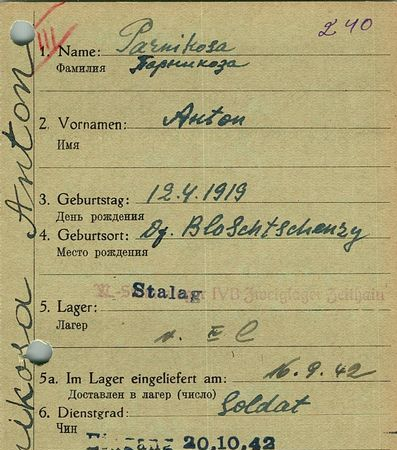 III
240
1. Name: Parnikosa
Фамилия Парникоза
2. Vornamen: Anton
Имя
3. Geburtstag: 12.4.1919
День рождения
4. Geburtsort: Df. Bloschtschenzy
Место рождения
Stalag
IVB Zweiglager Zeithain
5. Lager:
Лагер
5a. Im Lager eingeliefert am: 16.9.42
Доставлен в лагер (число)
6. Dienstgrad: Soldat
Чин
Eingang 20.10.42
nikosa Anton